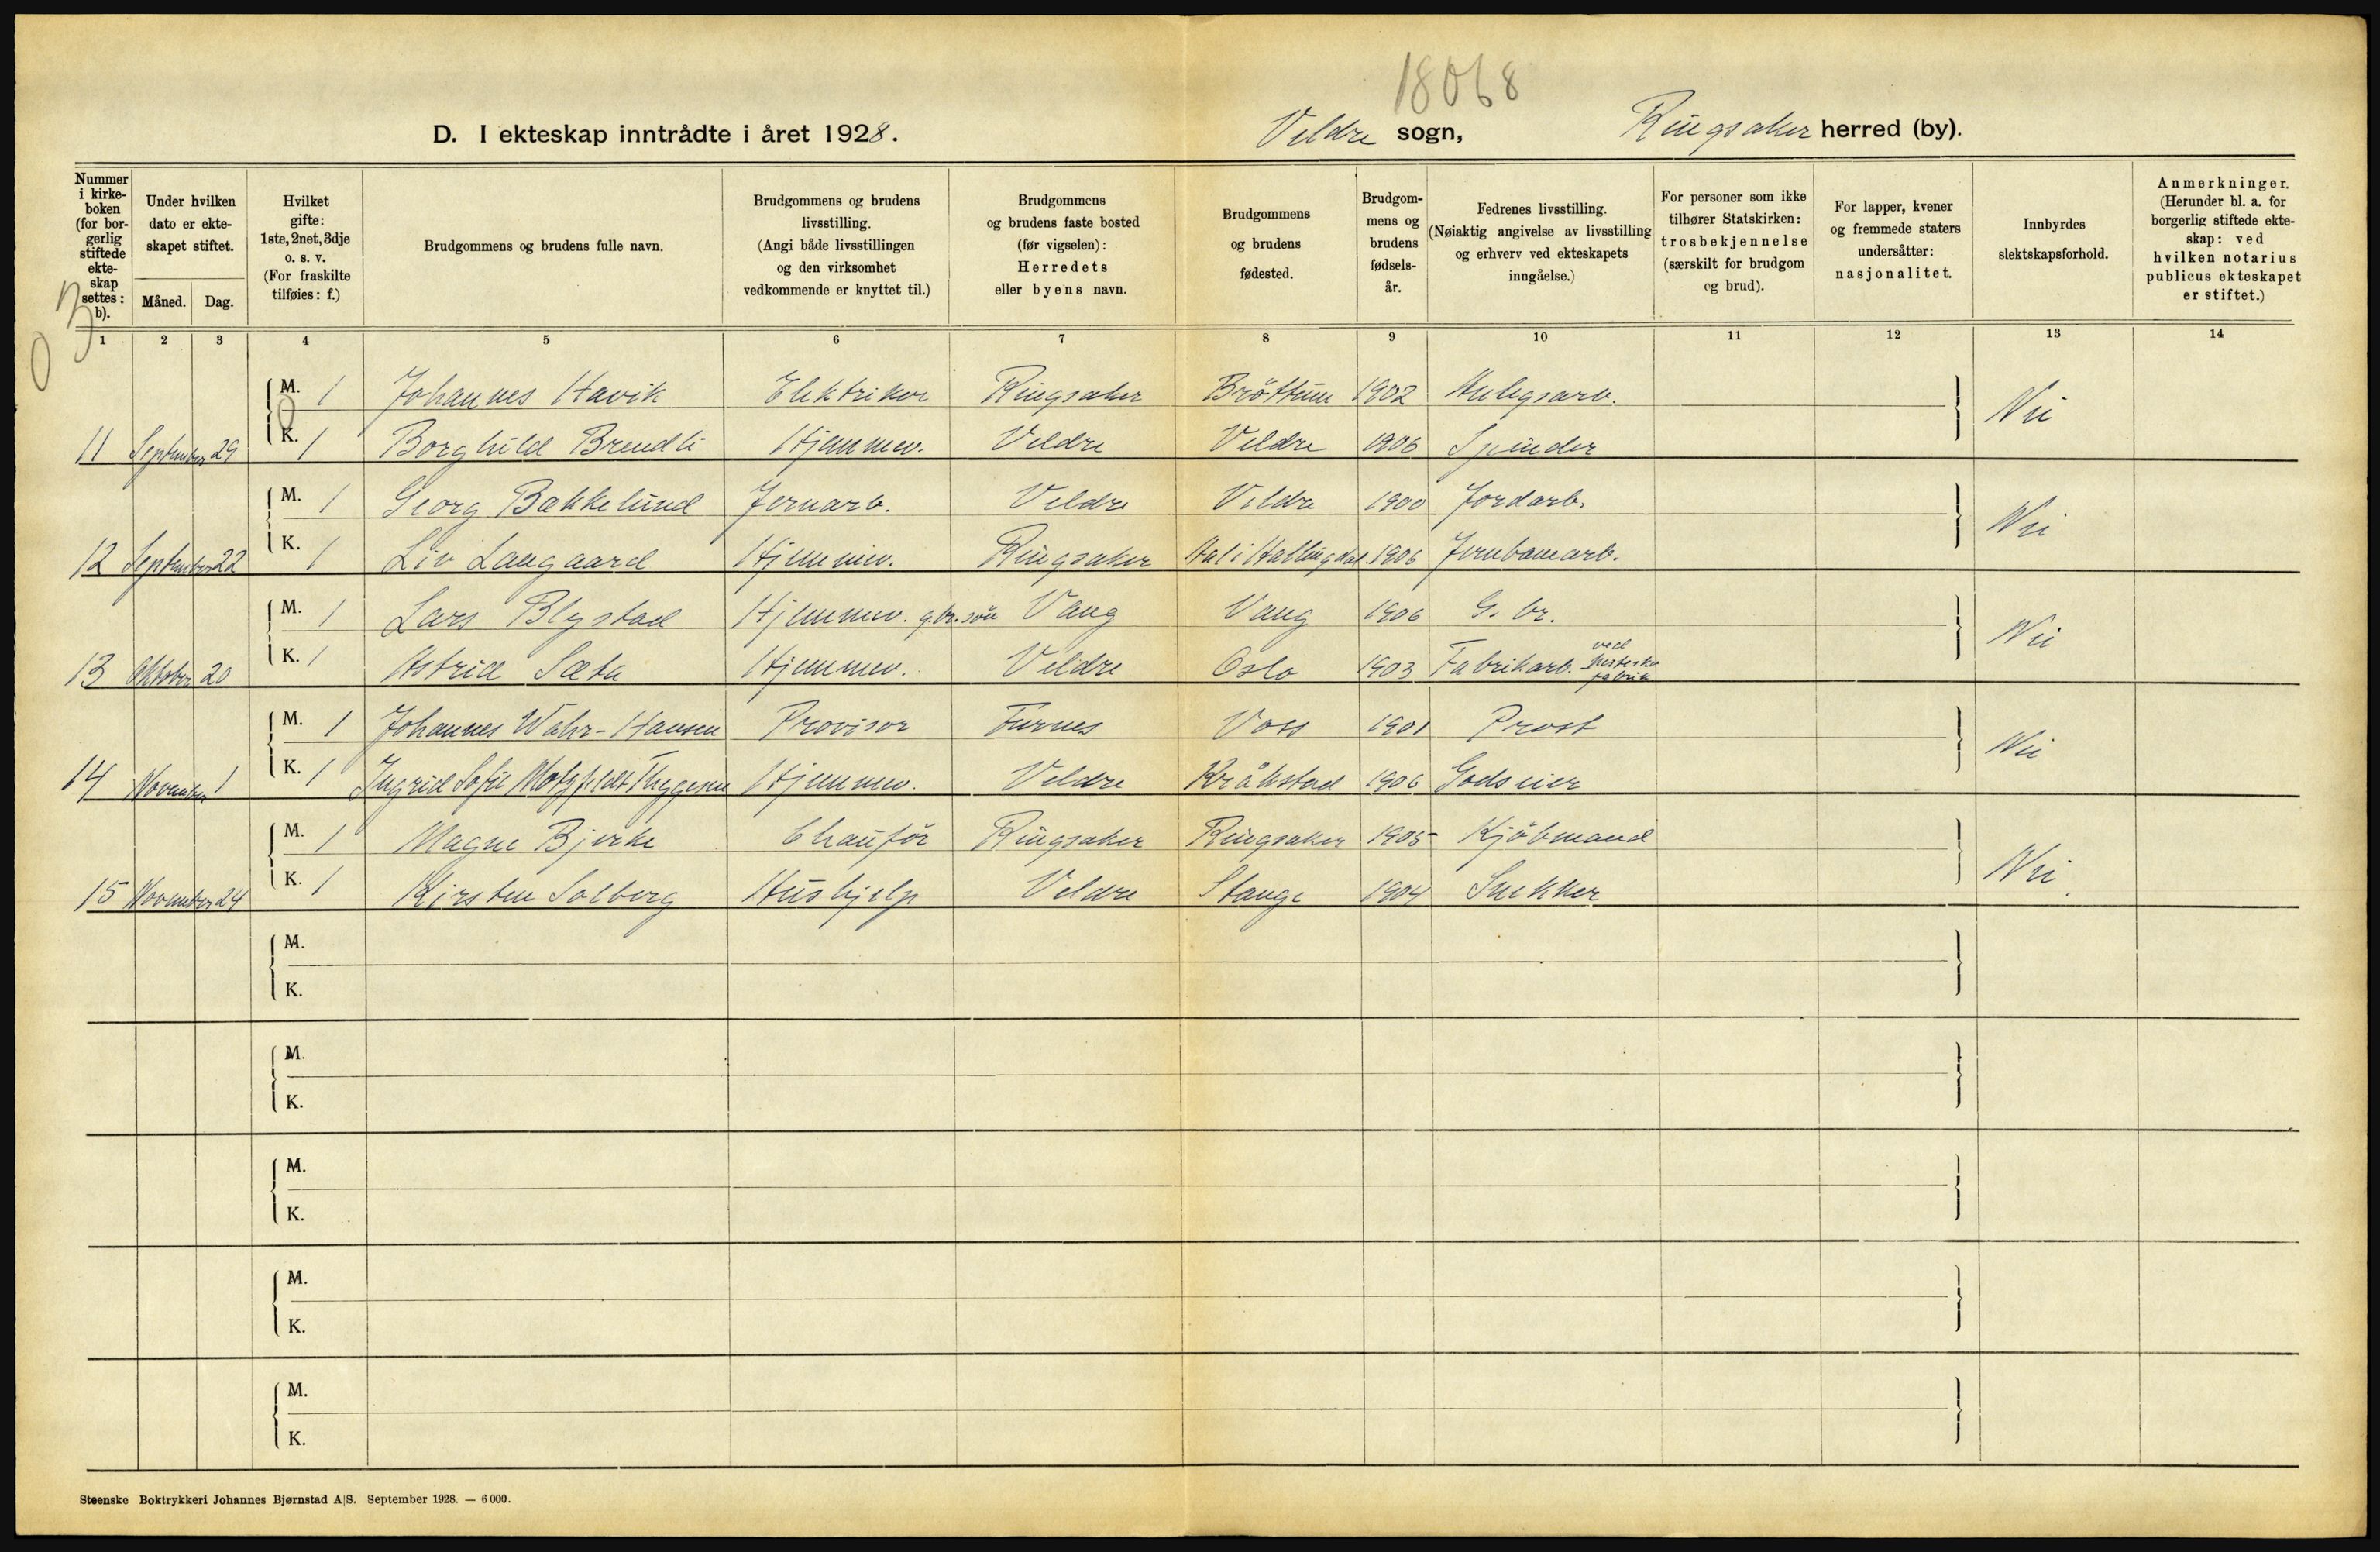 18068
D. I ekteskap inntrådte i året 1928. Veldre sogn, Ringsaker herred (by).
Nummer i kirke-boken (for bor-gerlig stiftede ekte-skap settes: b).
Under hvilken dato er ekte-skapet stiftet.
Måned. Dag.
Hvilket gifte: 1ste, 2net, 3dje o. s. v. (For fraskilte tilføies: f.)
Brudgommens og brudens fulle navn.
Brudgommens og brudens livsstilling. (Angi både livsstillingen og den virksomhet vedkommende er knyttet til.)
Brudgommens og brudens faste bosted (før vigselen): Herredets eller byens navn.
Brudgommens og brudens fødested.
Brudgom-mens og brudens fødsels-år.
Fedrenes livsstilling. (Nøiaktig angivelse av livsstilling og erhverv ved ekteskapets inngåelse.)
For personer som ikke tilhører Statskirken: trosbekjennelse (særskilt for brudgom og brud).
For lapper, kvener og fremmede staters undersåtter: nasjonalitet.
Innbyrdes slektskapsforhold.
Anmerkninger. (Herunder bl. a. for borgerlig stiftede ekte-skap: ved hvilken notarius publicus ekteskapet er stiftet.)
1 2 3 4 5 6 7 8 9 10 11 12 13 14
M. 1 Johannes Havik Elektriker Ringsaker Brøttum 1902 Anlegsarb. Nei
11 September 29 K. 1 Borghild Brendli Hjemmev. Veldre Veldre 1906 Spinder
M. 1 Georg Bakkelund Jernarb. Veldre Veldre 1900 Jordarb. Nei
12 September 22 K. 1 Liv Langaard Hjemmev. Ringsaker Hal i Hallingdal. 1906 Jernbanearb.
M. 1 Lars Blystad Hjemmev. g.br. søn Vang Vang 1906 G. br. Nei
13 Oktober 20 K. 1 Astrid Sæta Hjemmev. Veldre Oslo 1903 Fabrikarb. ved hestesko fabrik
M. 1 Johannes Wahr-Hansen Provisor Furnes Voss 1901 Prost Nei
14 November 1 K. 1 Ingrid Sofie Motzfeldt Thygesen Hjemmev. Veldre Kråkstad 1906 Godseier
M. 1 Magne Bjerke Chauför Ringsaker Ringsaker 1905 Kjöbmand Nei.
15 November 24 K. 1 Kirsten Solberg Hushjelp Veldre Stange 1904 Snekker
M.
K.
M.
K.
M.
K.
M.
K.
M.
K.
Steenske Boktrykkeri Johannes Bjørnstad A|S. September 1928. — 6000.